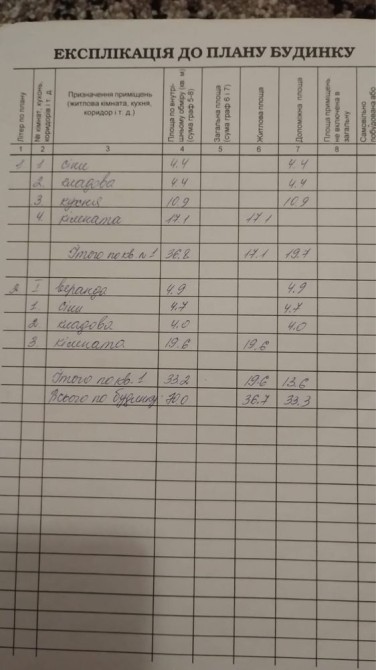 ЕКСПЛІКАЦІЯ ДО ПЛАНУ БУДИНКУ
Літер по плану
№№ кімнат, кухонь, коридорів і т. д.
Призначення приміщень (житлова кімната, кухня, коридор і т. д.)
Площа по внутрішньому обміру (кв. м) (сума граф 5-8)
Загальна площа (сума граф 6 і 7)
Житлова площа
Допоміжна площа
Площа приміщень не включена в загальну
Самовільно побудована або
1 2 3 4 5 6 7 8
1 1 сіни 4.4 4.4
2. кладова 4.4 4.4
3. кухня 10.9 10.9
4. кімната 17.1 17.1
Итого по кв. №1 36.8 17.1 19.7
2 I веранда 4.9 4.9
1. Сіни 4.7 4.7
2 кладова 4.0 4.0
3. кімната 19.6 19.6
Итого по кв. 1 33.2 19.6 13.6
Всього по будинку: 70.0 36.7 33.3